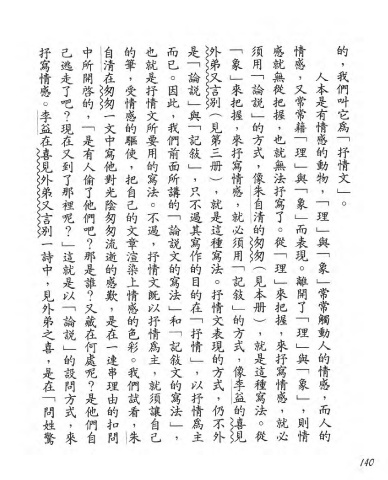 的，我們叫它為「抒情文」。
人本是有情感的動物，「理」與「象」常常觸動人的情感，而人的
情感，又常常藉「理」與「象」而表現。離開了「理」與「象」，則情
感就無從把握，也就無法抒寫了。從「理」來把握，來抒寫情感，就必
須用「論說」的方式，像朱自清的匆匆（見本冊），就是這種寫法。從
「象」來把握，來抒寫情感，就必須用「記敍」的方式，像李益的喜見
外弟又言別（見第三冊），就是這種寫法。抒情文表現的方式，仍不外
是「論說」與「記敍」，只不過其寫作的目的在「抒情」，以抒情為主
而已。因此，我們前面所講的「論說文的寫法」和「記敍文的寫法」，
也就是抒情文所要用的寫法。不過，抒情文既以抒情為主，就須讓自己
的筆，受情感的驅使，把自己的文章渲染上情感的色彩。我們試看，朱
自清在匆匆一文中寫他對光陰匆匆流逝的感歎，是在一連串理由的扣問
中所開啓的，「是有人偷了他們吧？那是誰？又藏在何處呢？是他們自
己逃走了吧？現在又到了那裡呢？」這就是以「論說」的設問方式，來
抒寫情感。李益在喜見外弟又言別一詩中，見外弟之喜，是在「問姓驚
140